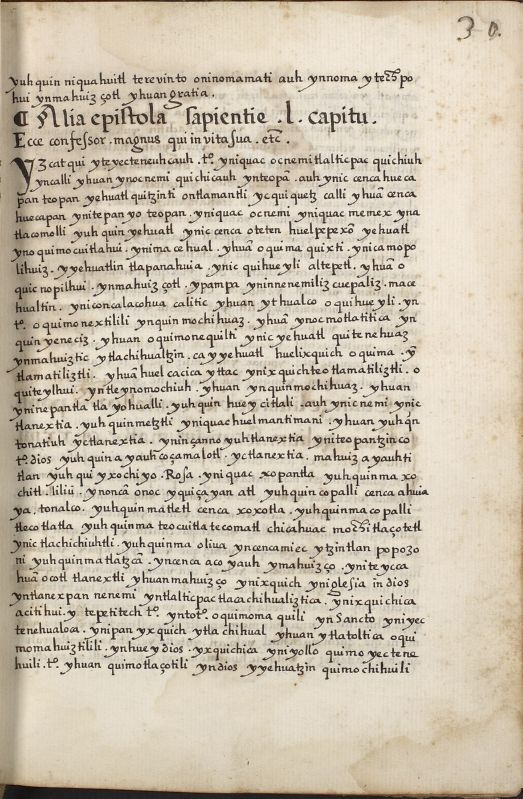 30.
yuh quin niquahuitl terevinto oninomamati auh ynnoma ytech po
hui ynmahuiz çotl yhuan gratia.
¶ Alia epistola sapientie .l. capitu.
Ecce confessor. magnus qui in vita sua. etc.
Yz cat qui yteyecteneuhcauh. to. yniquac oc nemi tlalticpac quichiuh
yncalli yhuan ynoc nemi quichicauh ynteopan. auh ynic cenca hueca
pan teopan yehuatl quitzinti ontlamantli. yc qui quetz calli yhuan cenca
huecapan ynitepan yo teopan. yniquac oc nemi yniquac memex yna
tlacomolli yuh quin yehuatl ynic cenca oteten huel pepexon yehuatl
yno quimo cuitlahui. ynima cehual. yhuan oquima quixti. ynicamopo
lihuiz. yyehuatlin tlapanahuia. ynic quihueyli altepetl. yhuan o
quic nopilhui. ynmahuiz çotl. ypampa yninnenemiliz cuepaliz. mace
hualtin. yniconcalacohua calitic yhuan ythualco oquihueyli. yn
to. oquimo nextilili ynquin mochihuaz. yhuan ynoc motlatitica yn
quin yeneciz. yhuan oquimonequilti ynic yehuatl quitenehuaz
ynmahuiztic ytlachihualtzin. ca yyehuatl huelixquich oquima. yn
tlamatiliztli. yhuan huel cacica yttac ynixquichteotlamatiliztli. o
quiteylhui. yntleynomochiuh. yhuan ynquinmochihuaz. yhuan
yninepantla tla yohualli. yuh quin huey citlali. auh ynic nemi ynic
tlanextia. yuh quinmetztli yniquac huel mantimani. yhuan yuh qn
tonatiuh yctlanextia. yninçanno yuhtlanextia yniteopantzinco
to. dios yuh quin ayauh coçamalotl. yctlanextia. mahuiz ayauhti
tlan yuh qui yxochiyo. Rosa. yniquac xopantla yuh quinma xo
chitl. liliu. ynoncan onoc yquiçayan atl yuh quin copalli cenca ahuia
ya. tonalco. yuh quin matletl cenca xoxotla. yuh quinma copalli
tlecotlatla yuh quinma teocuitlatecomatl chicahuac mochi tlaçotetl
ynic tlachichiuhtli. yuh quinma oliua yncencamiec ytzintlan popozo
ni yuh quinma tlatzcan. yncenca aco yauh ynmahuizço. ynite ycca
huan ocotl tlanextli yhuan mahuizço ynixquich yniglesia in dios
yntlanexpan nenemi yntlalticpac tlaca chihualiztica. ynixquichica
acitihui. y tepetitech to. yntoto. oquimoma quili yn Sancto yniyec
tenehualoca. ynipan yxquich ytla chihual yhuan ytlatoltica oqui
momahuiztilili. ynhueydios. yxquichica yniyollo quimo yectene
huili. to. yhuan quimotlaçotili yndios yyehuatzin quimochihuili